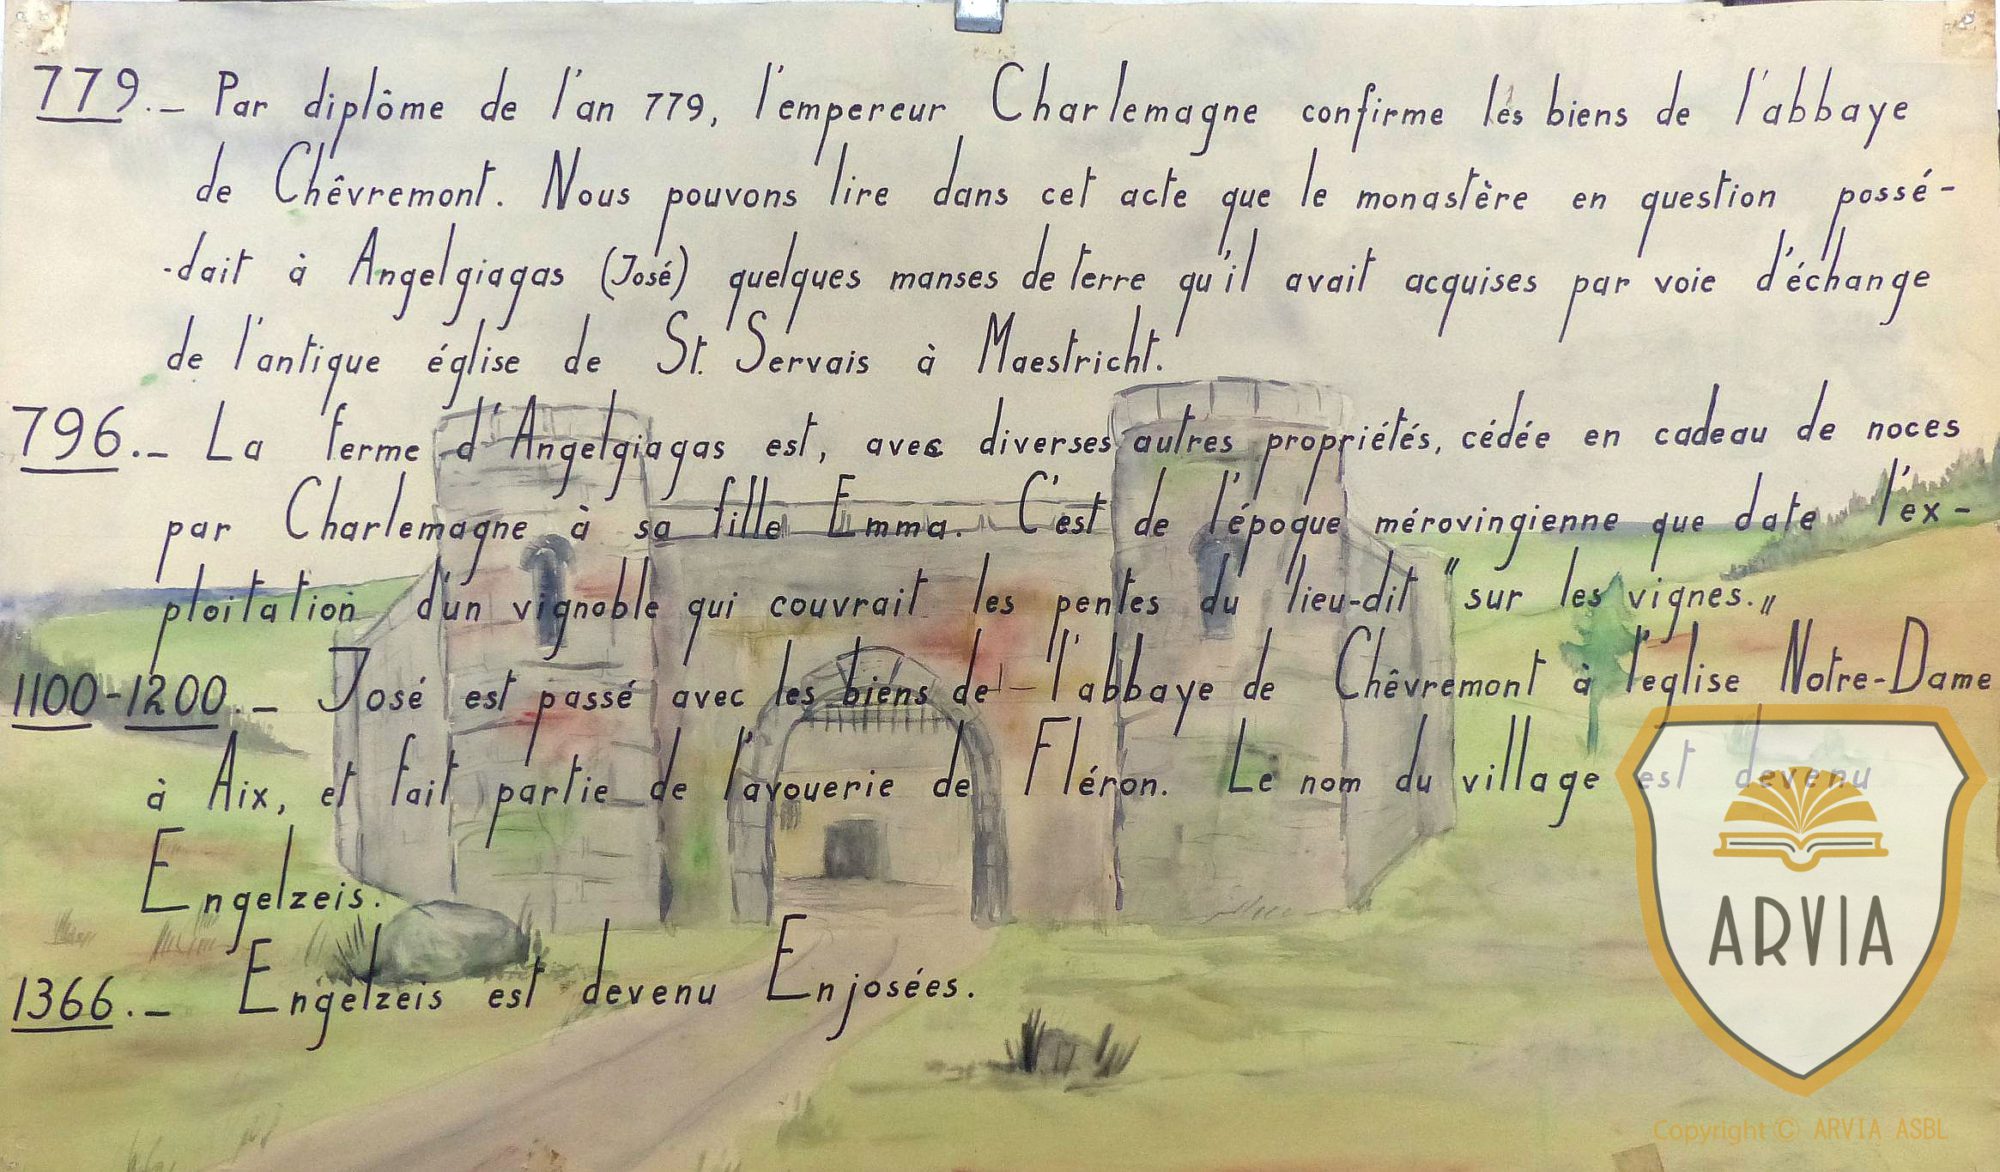 779._ Par diplôme de l'an 779, l'empereur Charlemagne confirme les biens de l'abbaye
de Chêvremont. Nous pouvons lire dans cet acte que le monastère en question possé-
-dait à Angelgiagas (José) quelques manses de terre qu'il avait acquises par voie d'échange
de l'antique église de St. Servais à Maestricht.
796._ La ferme d'Angelgiagas est, avec diverses autres propriétés, cédée en cadeau de noces
par Charlemagne à sa fille Emma. C'est de l'époque mérovingienne que date l'ex-
ploitation d'un vignoble qui couvrait les pentes du lieu-dit "sur les vignes."
1100-1200._ José est passé avec les biens de l'abbaye de Chêvremont à l'eglise Notre-Dame
à Aix, et fait partie de l'avouerie de Fléron. Le nom du village est devenu
Engelzeis.
1366._ Engelzeis est devenu Enjosées.
ARVIA
Copyright © ARVIA ASBL